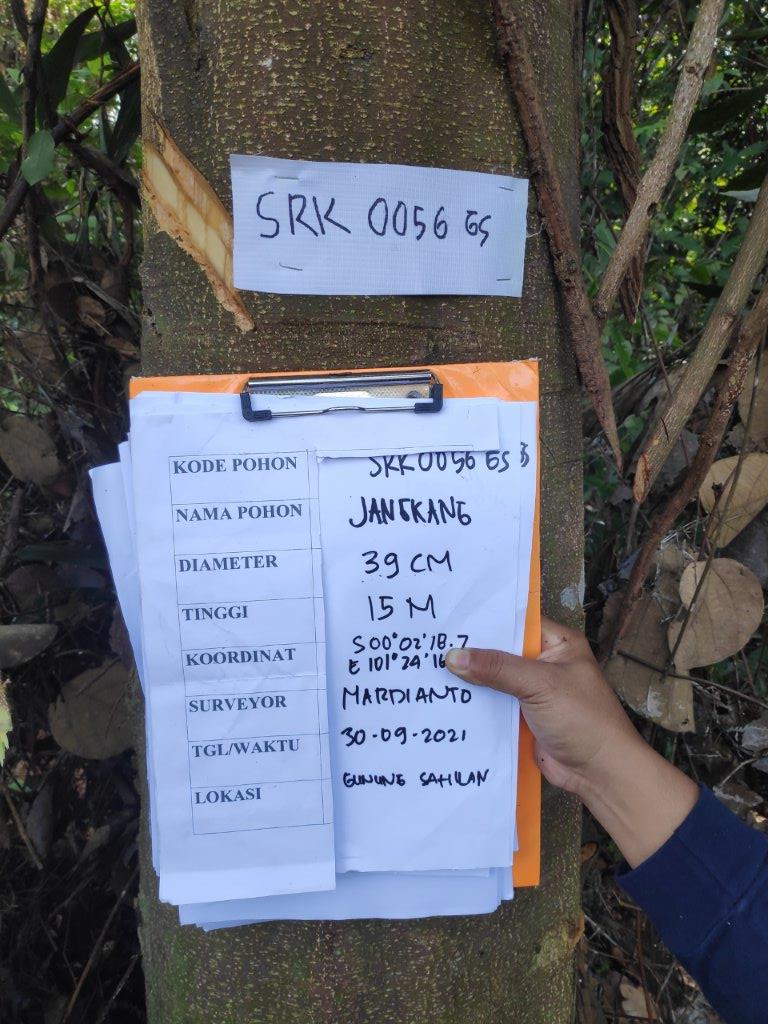 SRK 0056 ES
KODE POHON SRK 0056 ES
NAMA POHON JANGKANG
DIAMETER 39 CM
TINGGI 15 M
KOORDINAT S 00°02'18.7
E 101°24'
SURVEYOR MARDIANTO
TGL/WAKTU 30-09-2021
LOKASI GUNUNG SAHILAN